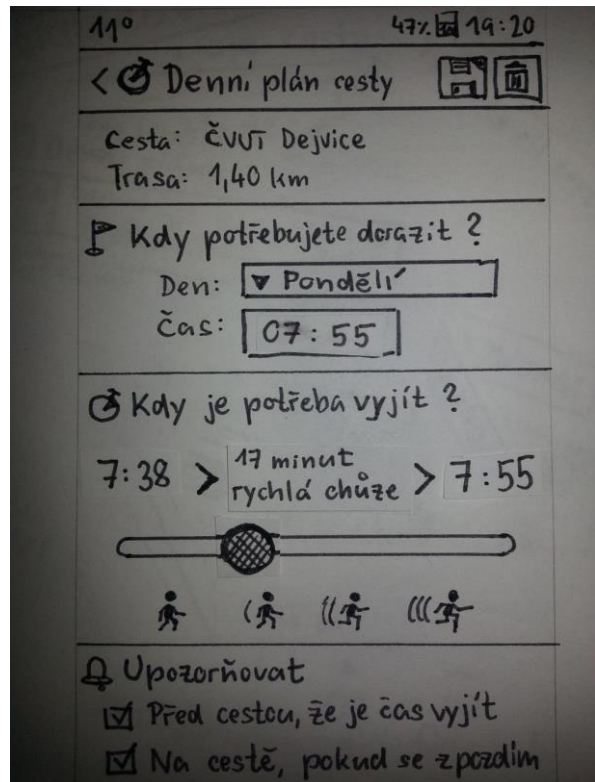 11° 47% 19:20
< Denní plán cesty
Cesta: ČVUT Dejvice
Trasa: 1,40 km
Kdy potřebujete dorazit ?
Den: ▼ Pondělí
Čas: 07:55
Kdy je potřeba vyjít ?
7:38 > 17 minut rychlá chůze > 7:55
Upozorňovat
Před cestou, že je čas vyjít
Na cestě, pokud se zpozdím